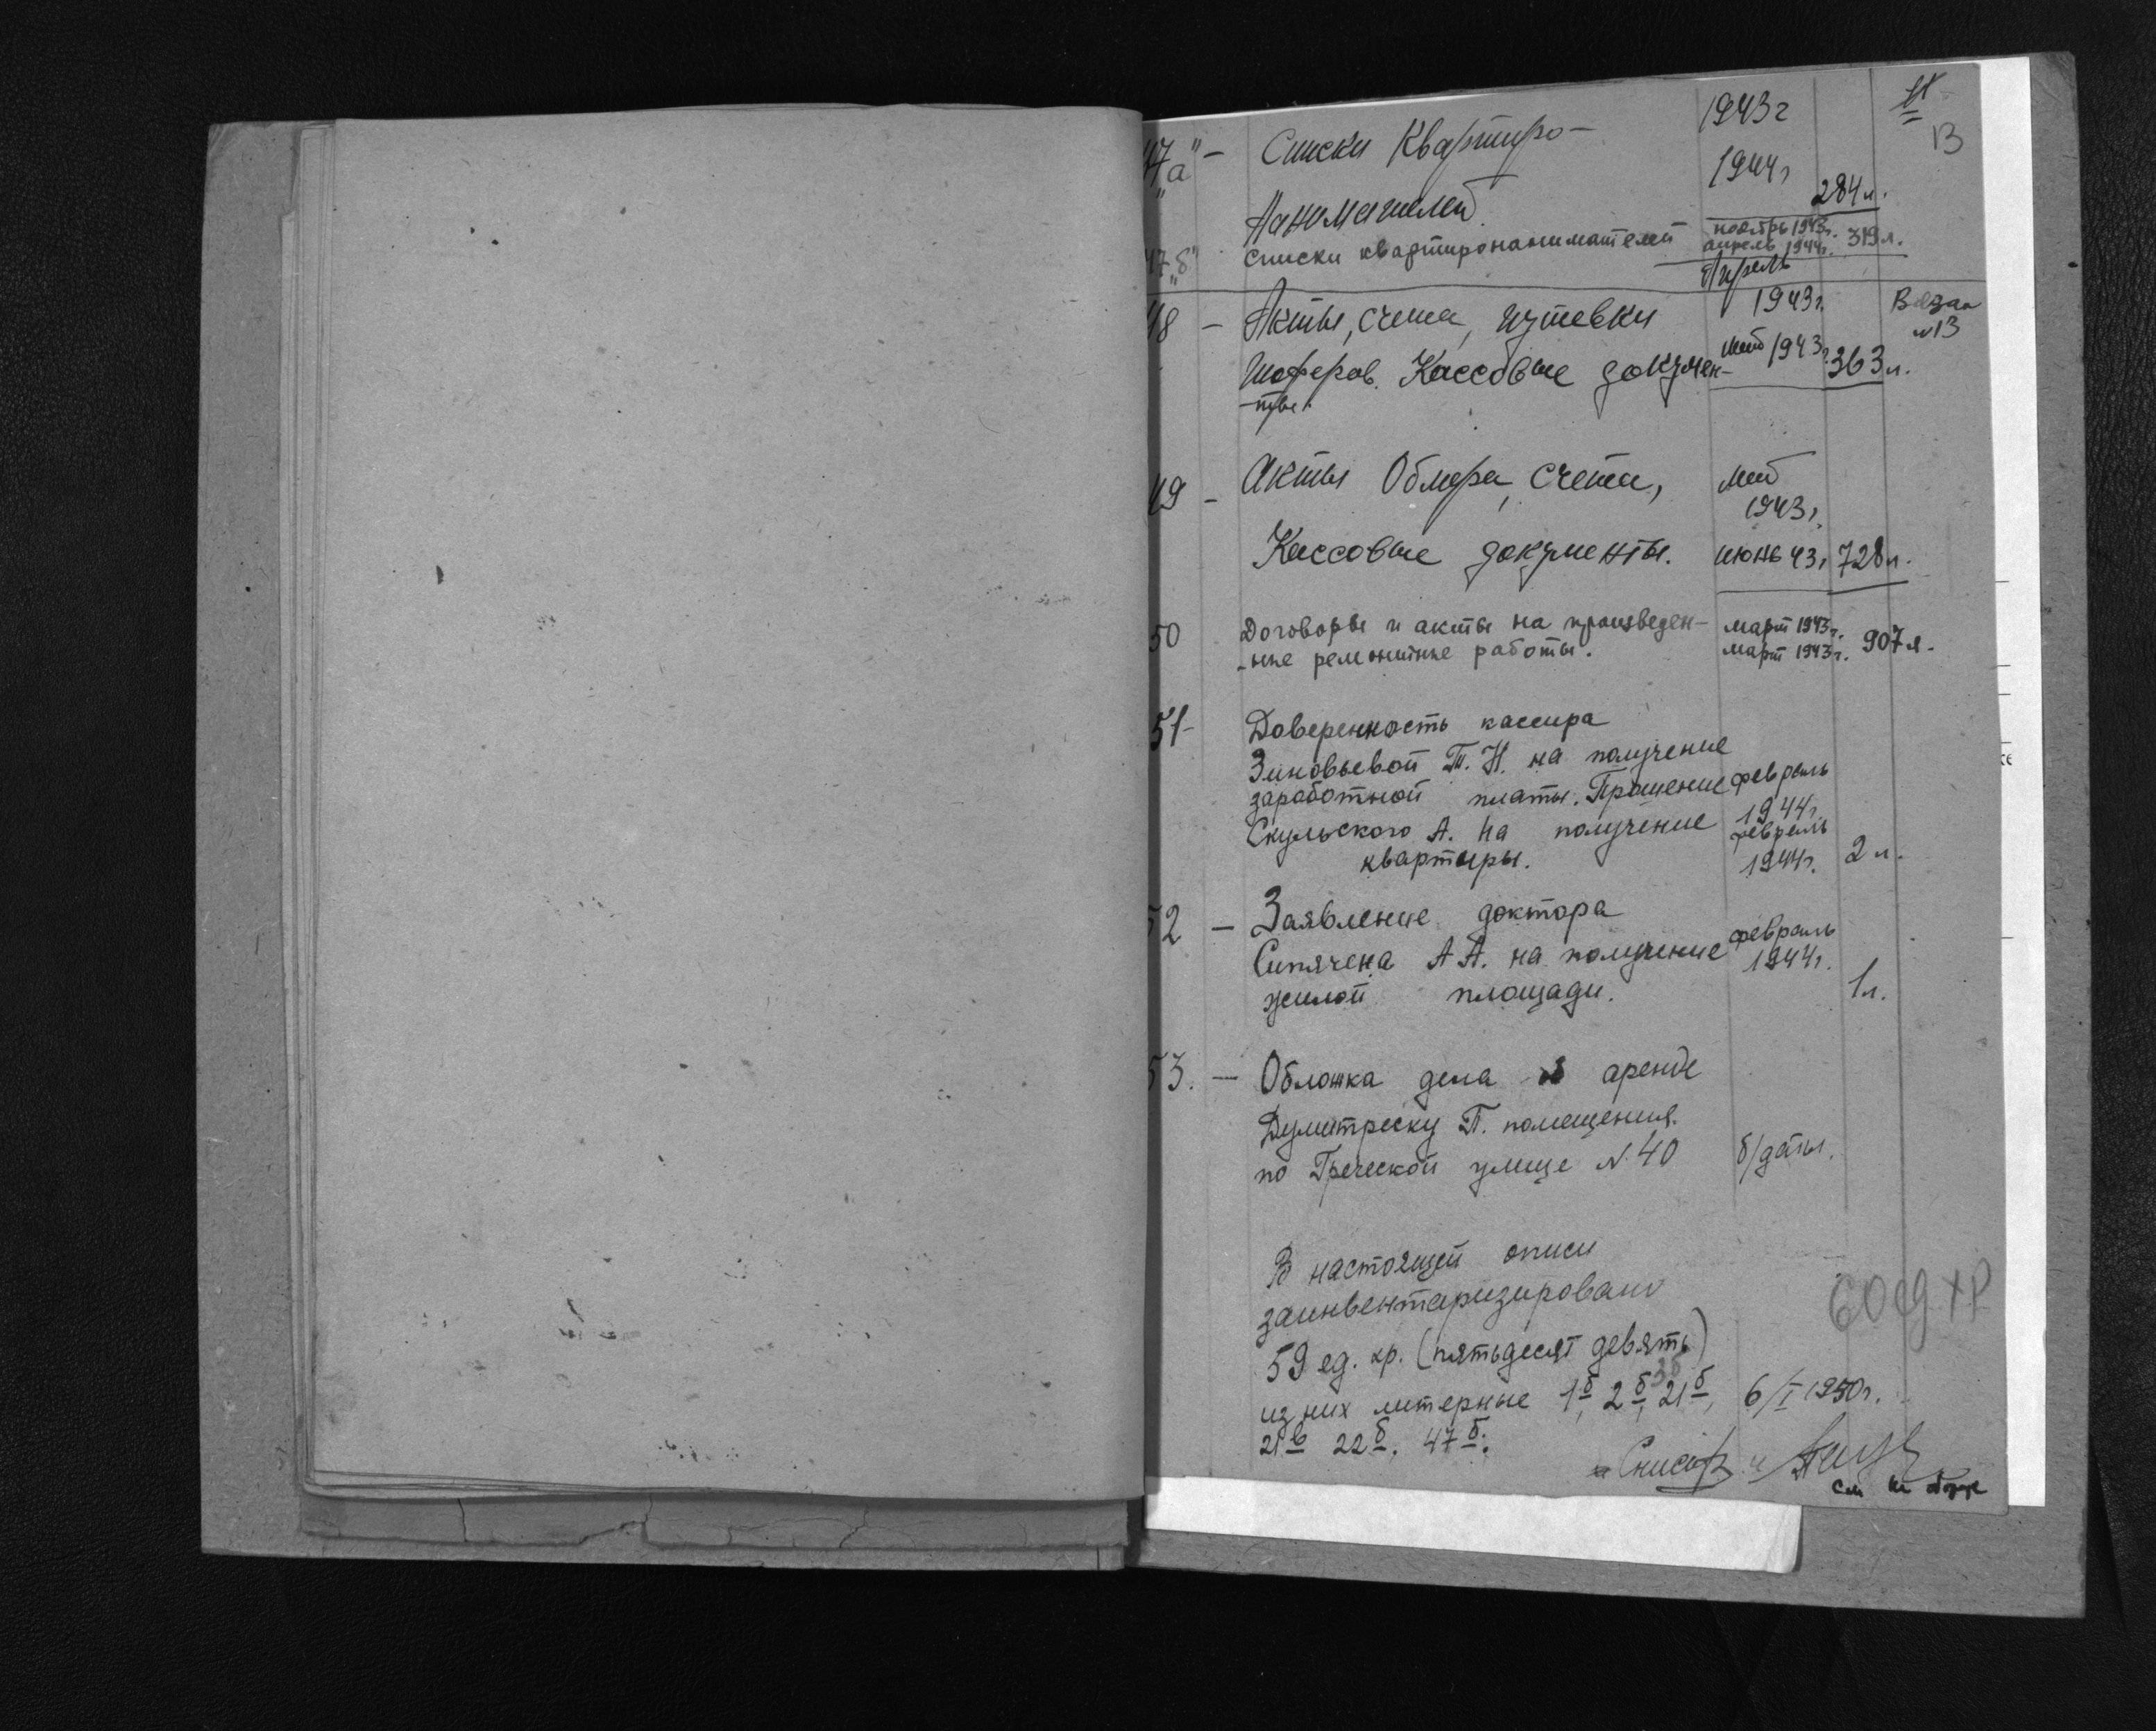 13
47 "а" - Списки Квартиро- 1943 г
1944 г 284 л.
Нанимателей
47 "б" списки квартиронанимателей ноябрь 1943 г. апрель 1944 г. 319 л.
48 - Акты, счета, путевки Апрель 1943 г.
шоферов. Кассовые докумен- май 1943 г. 363 л.
-ты.
№13
49 - Акты Обмера, счета, май 1943 г.
Кассовые документы. июнь 43 г 728 л.
50 Договоры и акты на произведен- март 1943 г.
-ные ремонтные работы. март 1943 г. 907 л.
51- Доверенность кассира
Зиновьевой Т. Н. на получение
заработной платы. Прошение февраль 1944 г.
Скульского А. на получение февраль
квартиры. 1944 г. 2 л.
52 - Заявление доктора
Сипячена А А. на получение февраль 1944 г.
жилой площади. 1 л.
53. - Обложка дела об аренде
Думитреску П. помещения.
по Греческой улице N 40 б/даты.
В настоящей описи
заинвентаризировано
59 ед. хр. (пятьдесят девять)
60 ед хр
из них литерные 1б, 2б, 3б 21б, 6/I 1950 г.
21в 22б. 47б.
см на обор